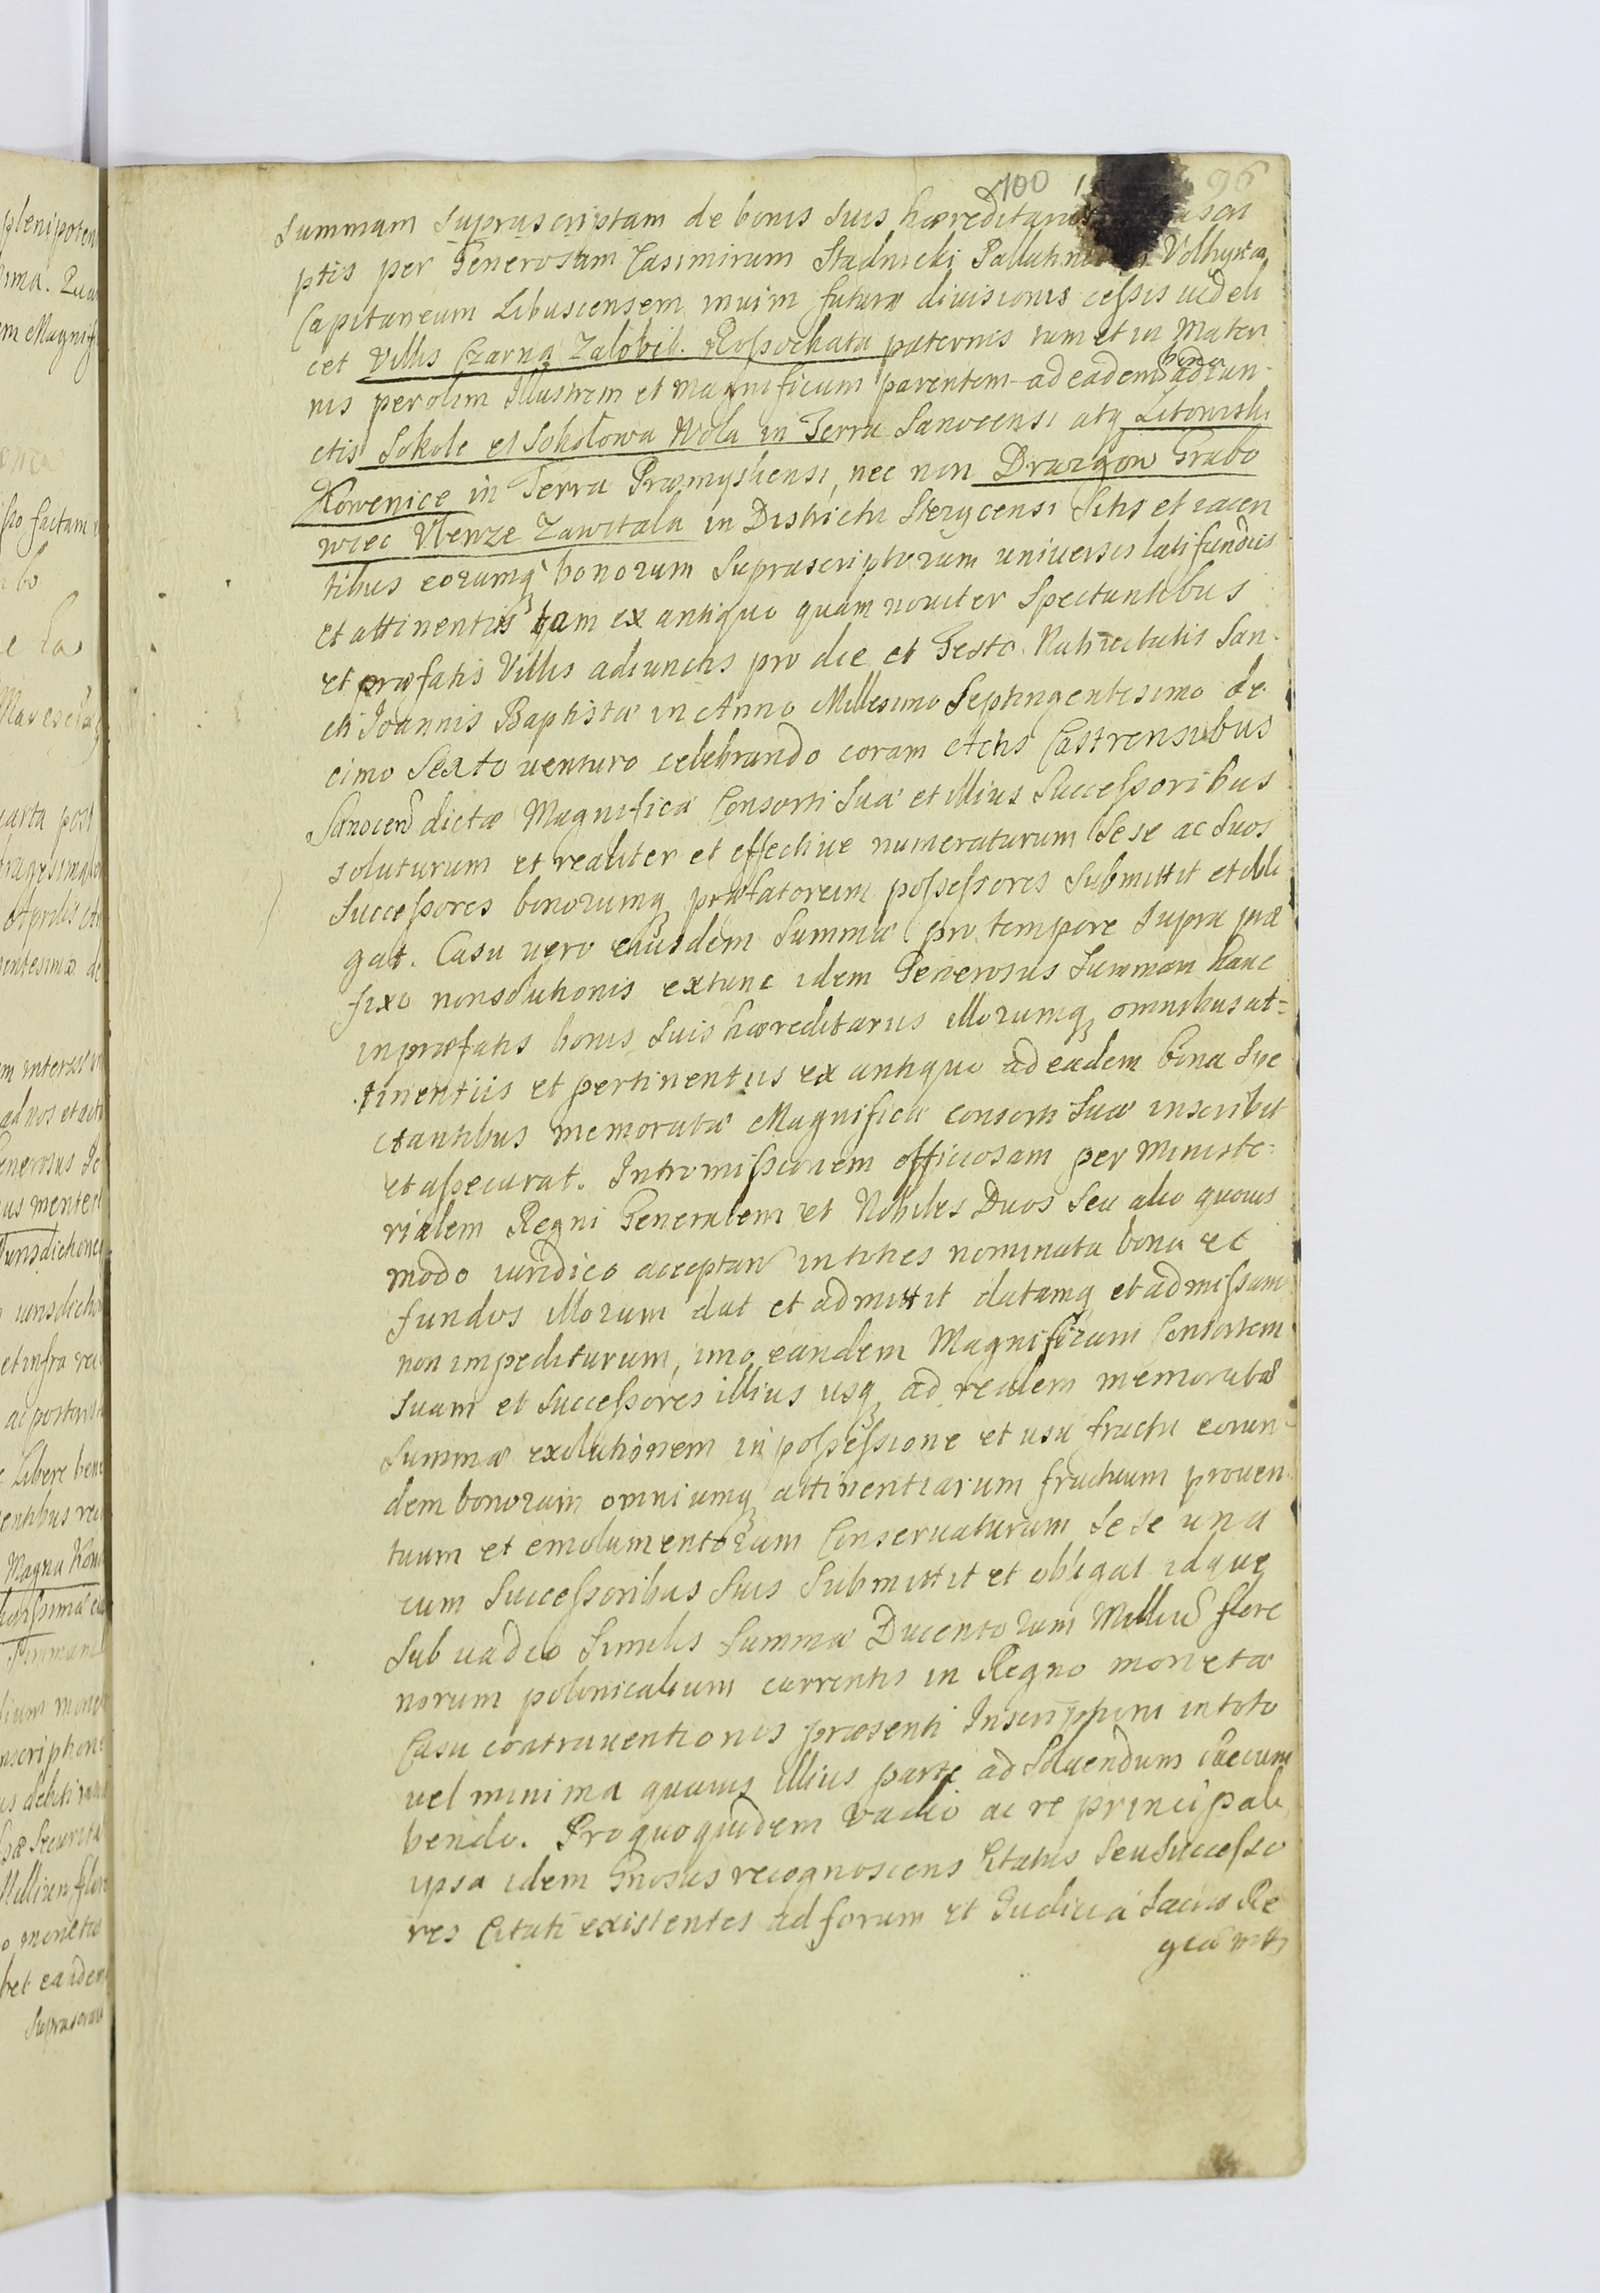 100 96
summam supra scriptam de bonis suis hæreditariis
ptis per Generosum Casimirum Stadnicki Pallatini Volhyniæ
Capitaneum Libuscensem in vim futuræ divisionis cessis videli
cet Villis Czarna Zalobik Rospochata paternis tum et in Mater
nis per olim Illustrem et Magnificum parentem ad eadem bona adiun-
ctis Sokole et Sokołowa Wola in Terra Sanocensi atq Litowiski
Rowenice in Terra Præmysliensi, nec non Drazgow Grabo
wiec Vlenze Zawitala in Districtu Stezycensi Sitis et iacen
tibus eorumq bonorum Suprascriptorum universis latifundiis
et attinentiis tam ex antiquo quam noviter Spectantibus
et præfatis Villis adiunctis pro die et Festo Nativitatis San-
cti Joannis Baptistæ in Anno Millesimo Septingentesimo de-
cimo Sexto venturo celebrando coram Actis Castrensibus
Sanocen dictæ Magnificæ Consorti Suæ et illius Successoribus
soluturum et realiter et effective numeraturum Se se ac Suos
Successores bonorumq præfatorum possessores Submittit et obli
gat. Casu vero eiusdem Summæ pro tempore Supra præ
fixo nonsolutionis extunc idem Generosus Summam hanc
in præfatis bonis Suis hæreditariis illorumq omnibus at-
tinentiis et pertinentiis ex antiquo ad eadem bona Spe
ctantibus memoratæ Magnificæ consorti Suæ inscribit
et assecurat. Intromissionem officiosam per Ministe-
rialem Regni Generalem et Nobiles Duos Seu alio quovis
modo iuridico acceptan in toties nominata bona et
fundos illorum dat et admittit datamq et admissam
non impediturum, imo eandem Magnificam Consortem
Suam et Successores illius usq ad realem memoratæ
Summæ exolutionem in possessione et usu fructu eorun-
dem bonorum omniumq attinentiarum fructuum proven-
tuum et emolumentorum Conservaturum Se se una
cum Successoribus Suis Submittit et obligat idque
Sub vadio Similis Summæ Ducentorum Milliu flore
norum polonicalium currentis in Regno monetæ
Casu contraventionis præsenti Inscriptioni in toto
vel minima quavis illius parte ad Solvendum
bendo. Pro quo quidem Vadio ac re principali
ipsa idem Gnosus recognoscens Citatus Seu Successo
res Citati existentes ad forum et Judicia Sacræ Re
giæ Mttis